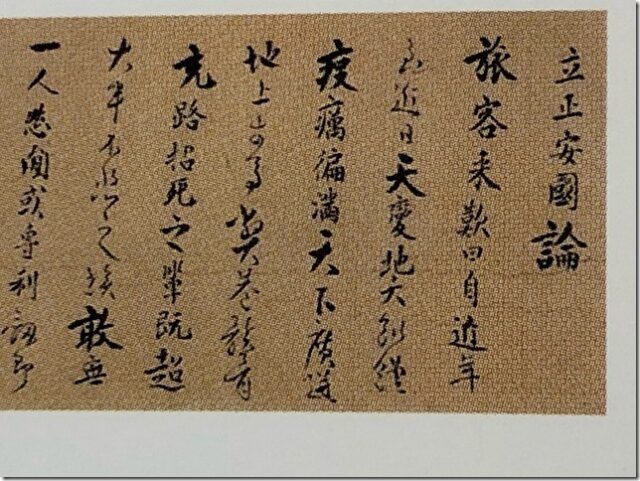 立正安國論
旅客来歎曰自近年
至近日天變地夭飢饉
疫癘偏滿天下廣迸
地上牛馬斃巷骸骨
充路招死之輩既超
大半不悲之族敢無
一人然間或專利劔即